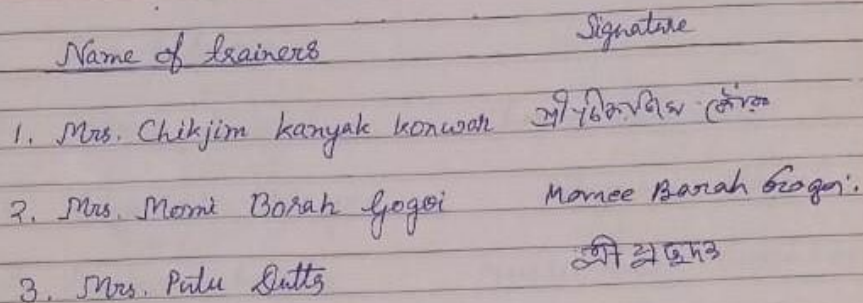 Name of trainers Signature
1. Mrs. Chikjim kanyak konwar শ্রী
2. Mrs. Momi Borah Gogoi Momee Barah Gogoi.
3. Mrs. Putu Dutta শ্রী